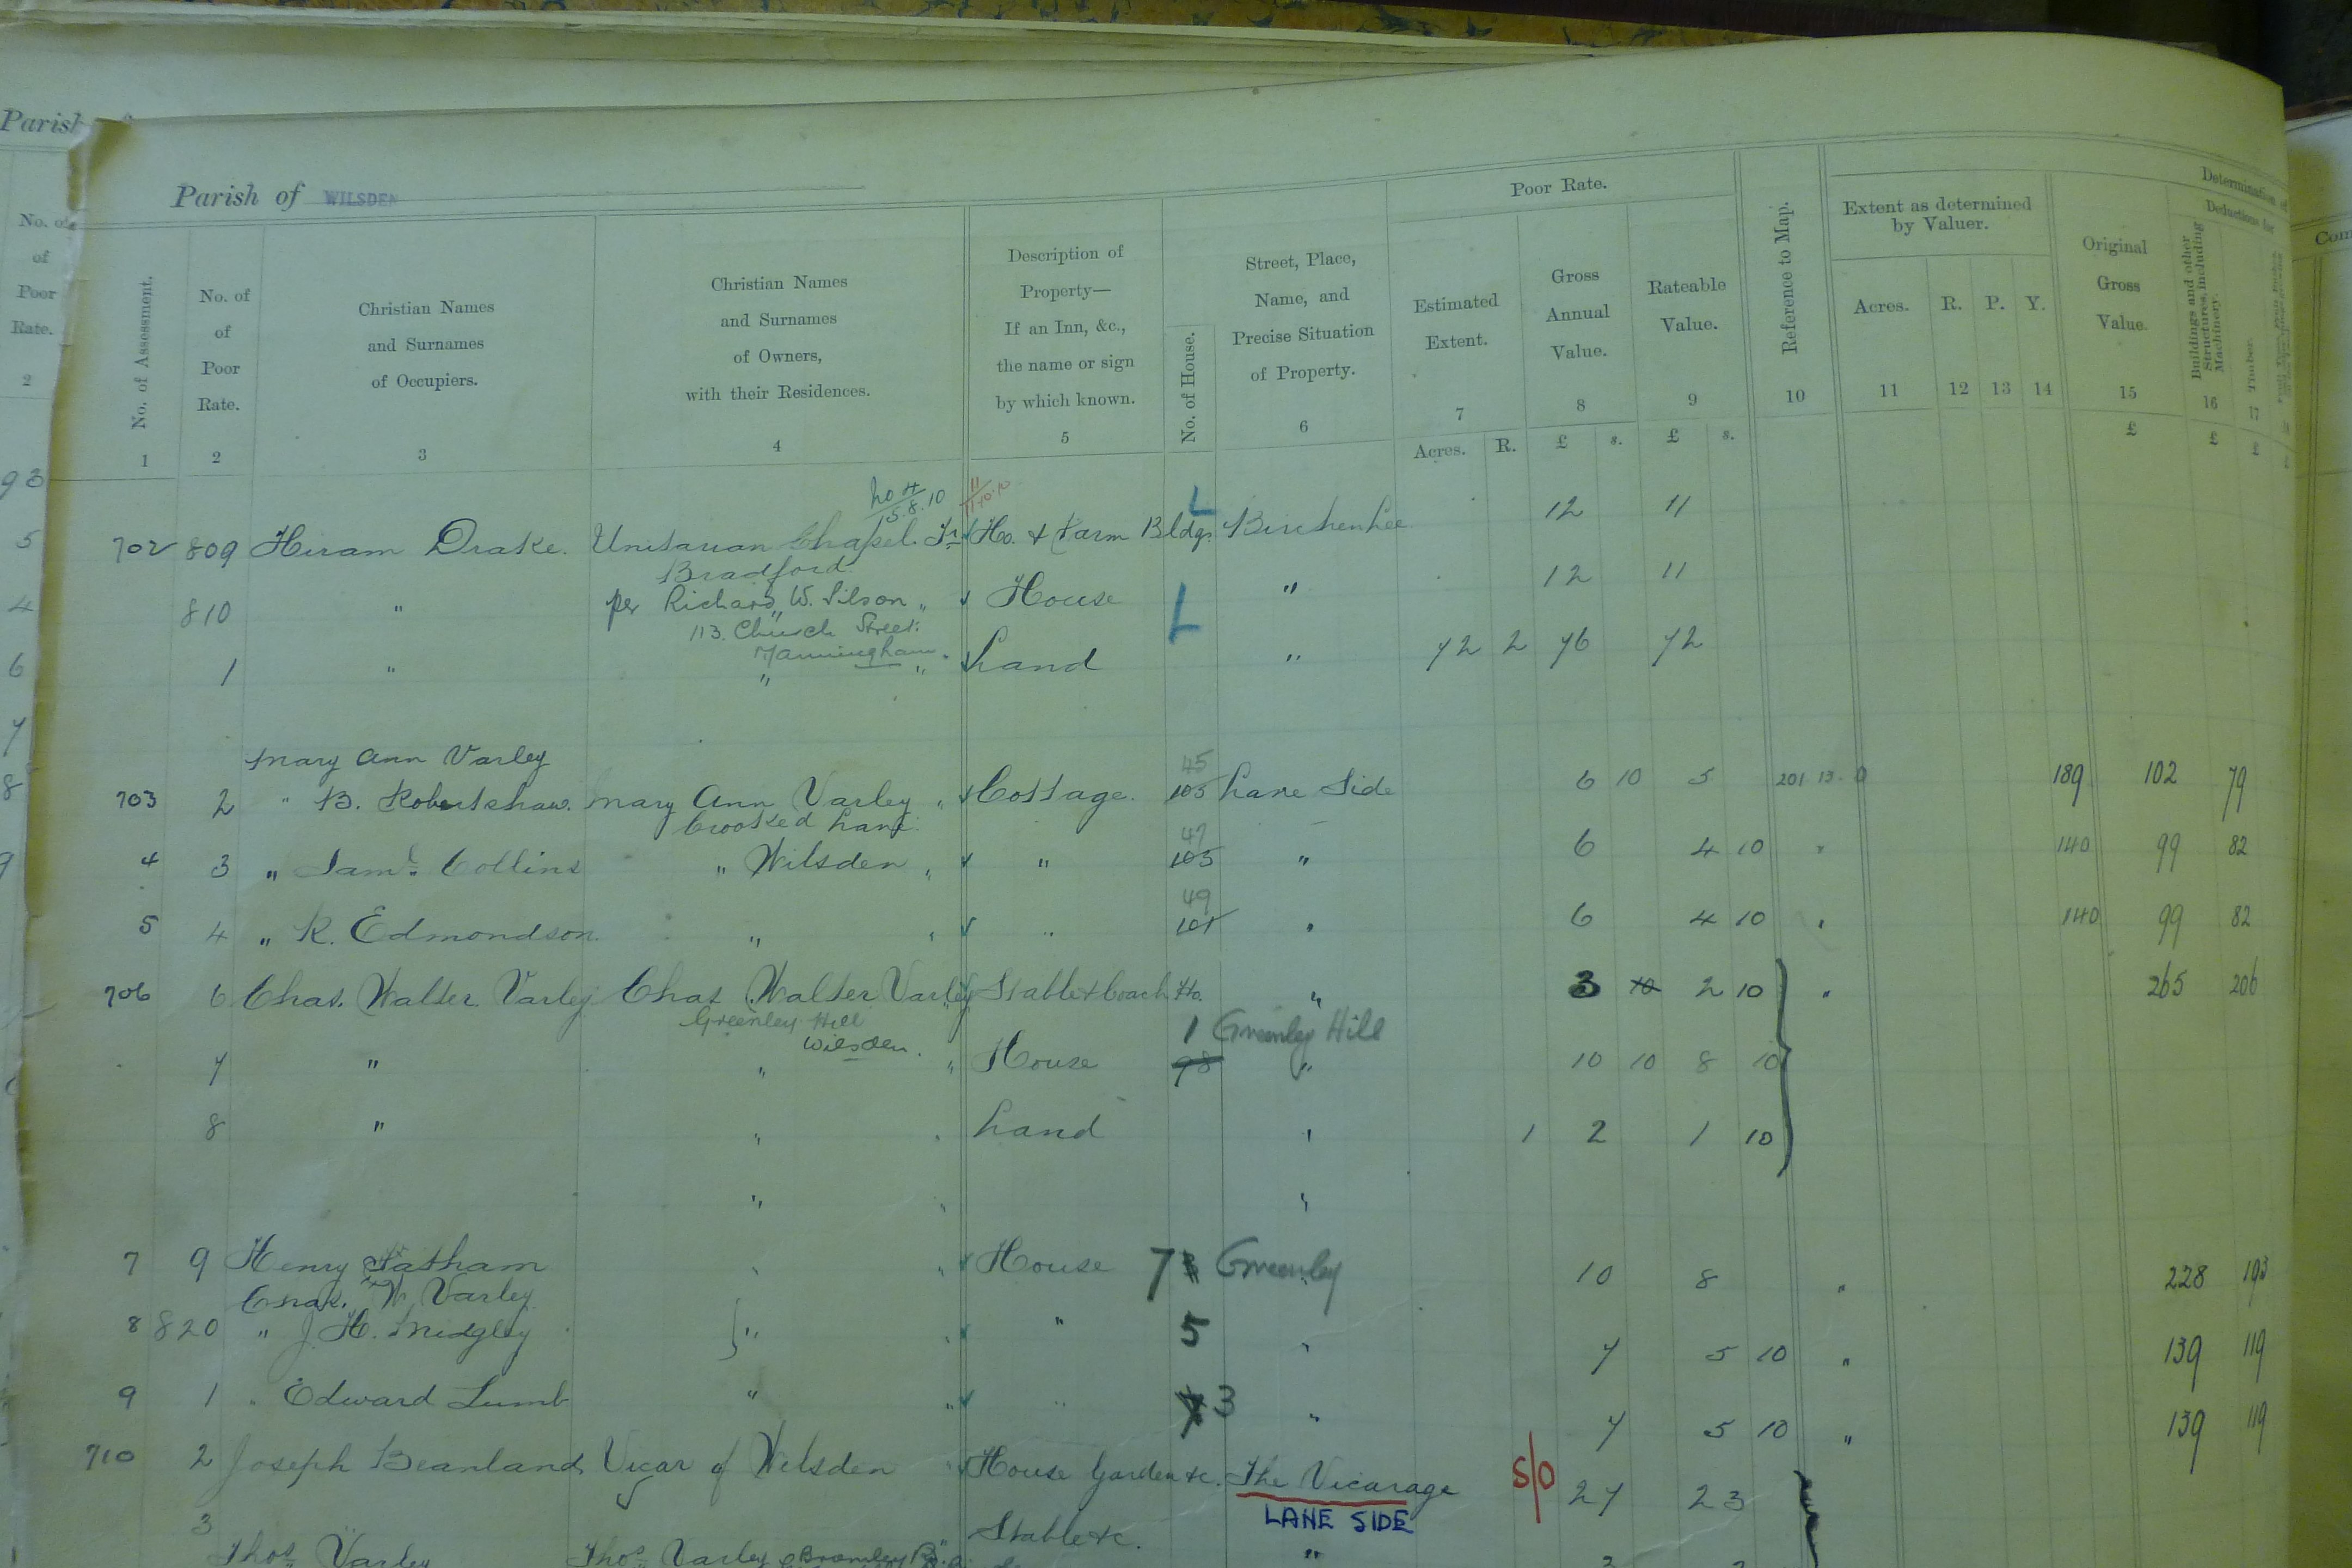 Parish
Parish of WILSDEN
No. of
of
Poor
Rate.
2
93
5
4
6
7
8
9
No. of Assessment.
1
No. of
of
Poor
Rate.
2
Christian Names
and Surnames
of Occupiers.
3
Christian Names
and Surnames
of Owners,
with their Residences.
4
Description of
Property—
If an Inn, &c.,
the name or sign
by which known.
5
No. of House.
Street, Place,
Name, and
Precise Situation
of Property.
6
Poor Rate.
Estimated
Extent.
7
Acres. R.
Gross
Annual
Value.
8
£ s.
Rateable
Value.
9
£ s.
Reference to Map.
10
Extent as determined
by Valuer.
Acres. R. P. Y.
11 12 13 14
Determination of
Original
Gross
Value.
15
£
Deductions for
Buildings and other
Structures, including
Machinery.
16
£
Timber.
17
£
Com
15.8.10
11
11.10.10
702 809 Hiram Drake. Unitarian Chapel Trs Ho. & Farm Bldgs L Birchenlee 12 11
Bradford
810 " per Richard W. Silson " House L " 12 11
113. Church Street.
Manningham.
1 " " " Land " 72 2 76 72
Mary Ann Varley
45
703 2 " B. Robertshaw. Mary Ann Varley " Cottage. 105 Lane Side 6 10 5 201.13.9 189 102 79
Crooked Lane
47
4 3 " Saml. Collins " Wilsden " " 103 " 6 4 10 " 140 99 82
49
5 4 " R. Edmondson " " " 101 " 6 4 10 " 140 99 82
706 6 Chas. Walter Varley Chas Walter Varley Stable & Coach Ho. " 3 10 2 10 " 265 206
Greenley Hill
Wilsden.
1 Greenley Hill
7 " " " House 98 " 10 10 8 10
8 " " " Land " 1 2 1 10
" " "
7 9 Henry Tatham " " House 7 Greenley 10 8 " 228 193
Chas. W. Varley
8 820 " J. H. Midgley " " " 5 " 7 5 10 " 139 119
9 1 " Edward Lumb " " " 3 " 7 5 10 " 139 119
710 2 Joseph Beanland Vicar of Wilsden " House Garden &c. The Vicarage S/O 27 23
LANE SIDE
3 Stable &c. "
Thos. Varley Thos. Varley Bromley